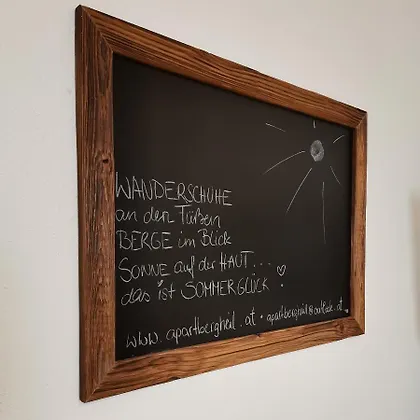 WANDERSCHUHE
an den Füßen
BERGE im Blick
SONNE auf der HAUT...
das ist SOMMERGLÜCK ♡
www.apartbergheil.at • apartbergheil@outlook.at